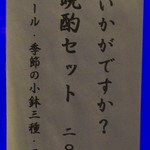 いかがですか?
晩酌セット 二〇
ール・季節の小鉢三種・